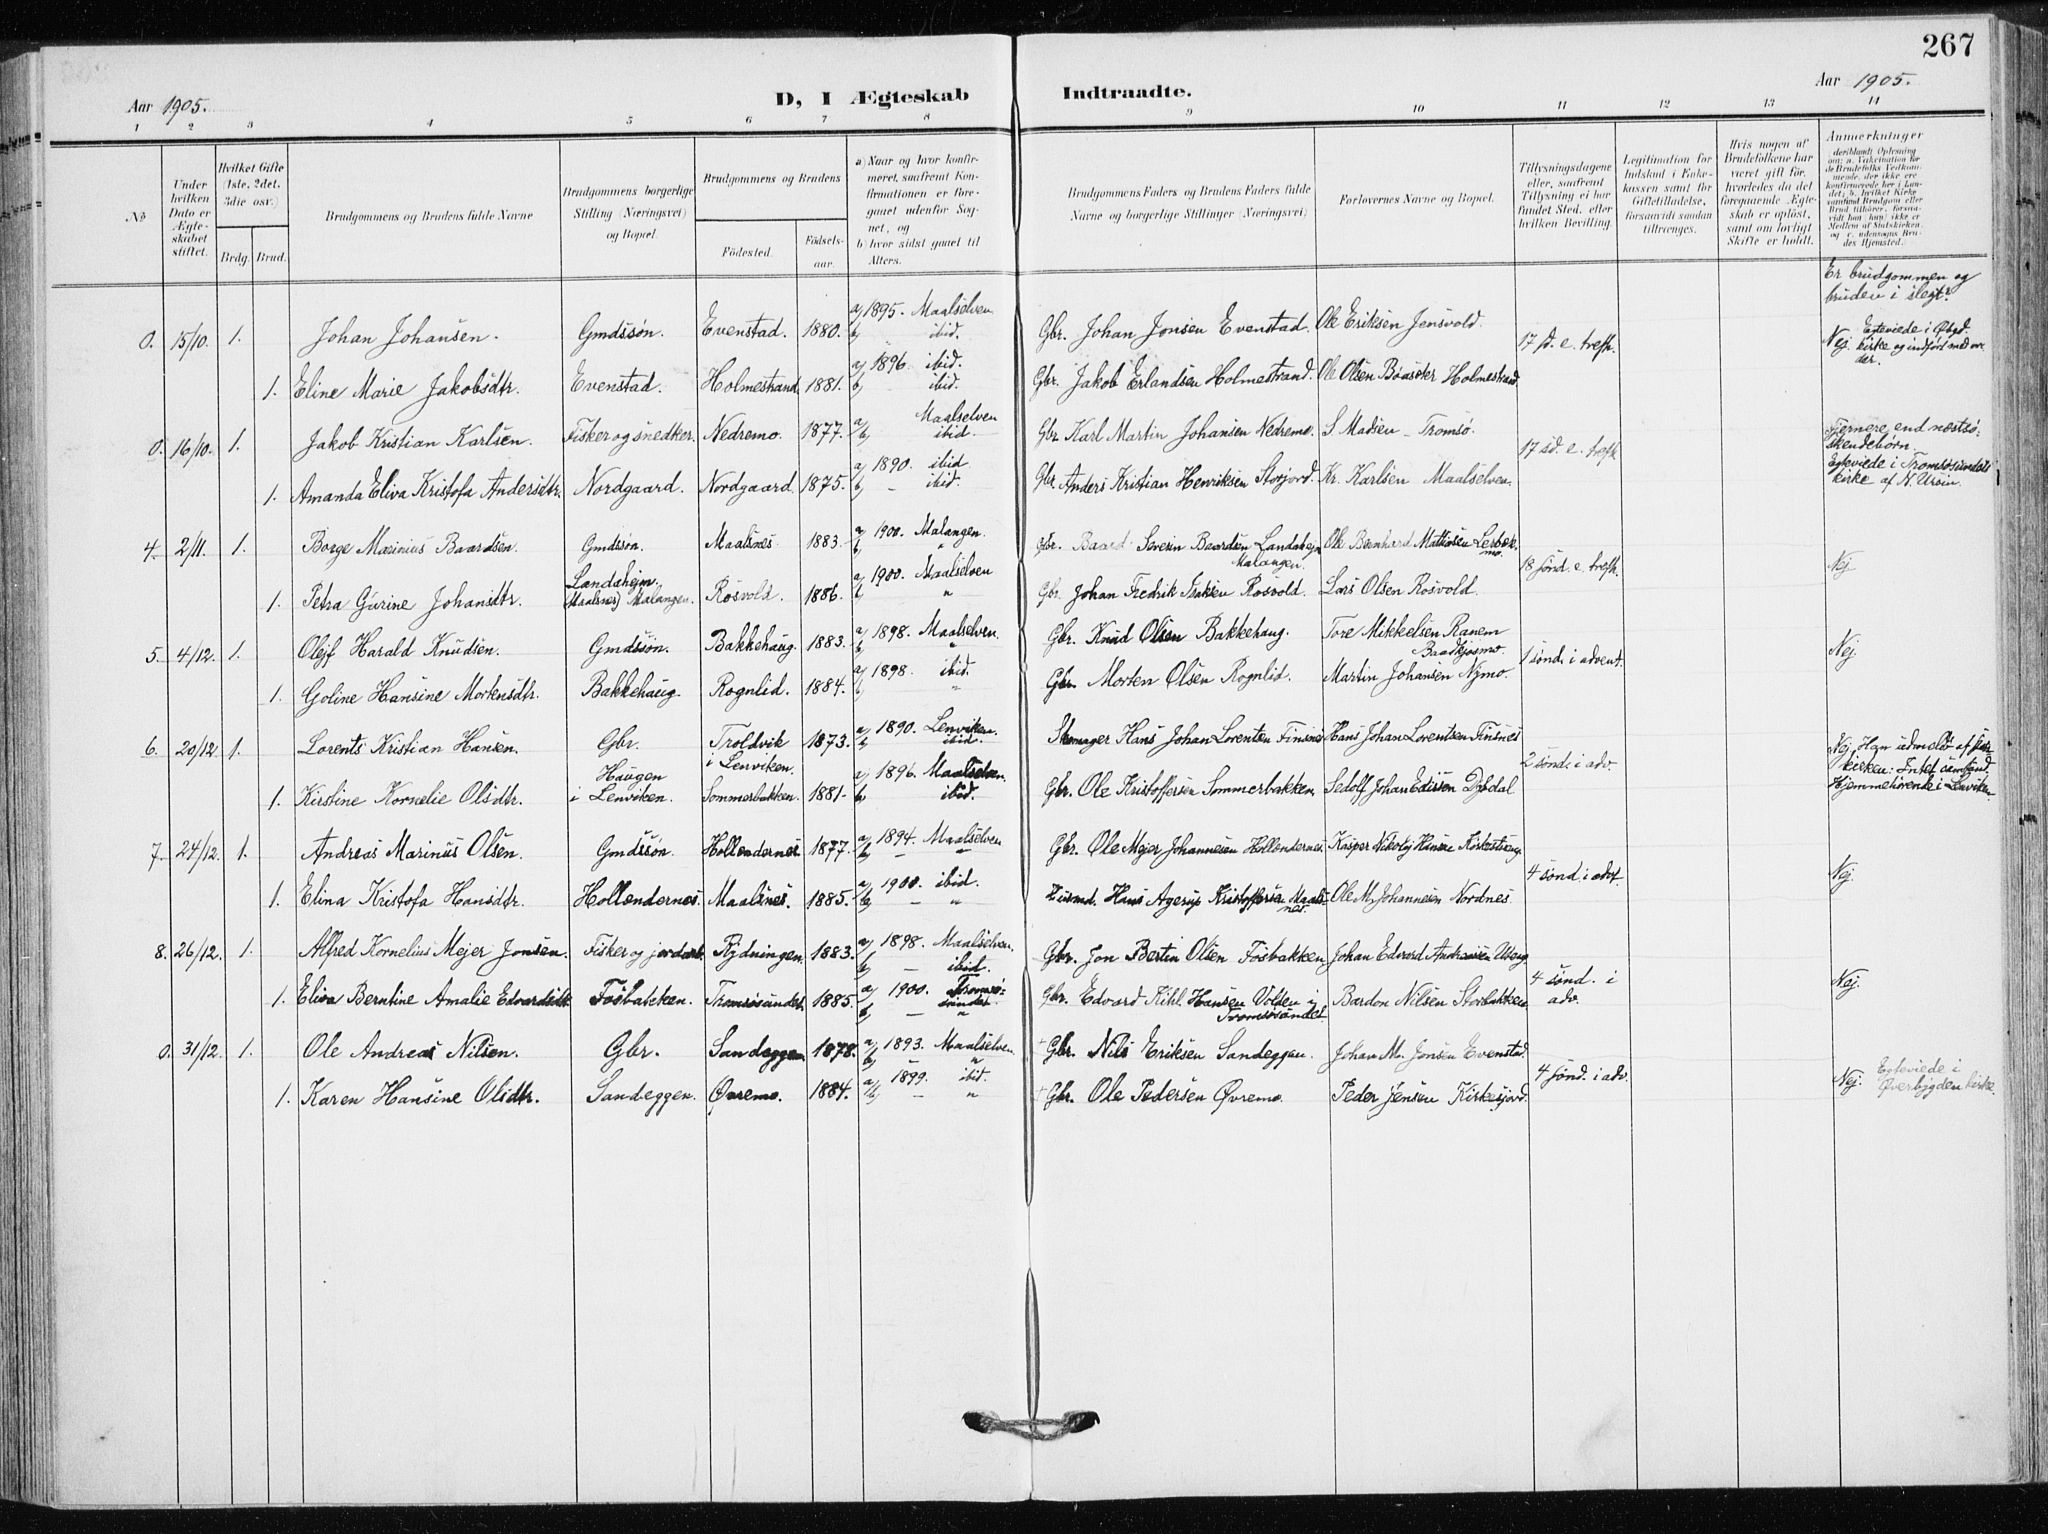 267
Aar 1905. D, I Ægteskab Indtraadte. Aar 1905.
1 2 3 4 5 6 7 8 9 10 11 12 13 14
No
Under hvilken Dato er Ægteskabet stiftet.
Hvilket Gifte (1ste, 2det, 3die osv.)
Brdg. Brud.
Brudgommens og Brudens fulde Navne
Brudgommens borgerlige Stilling (Næringsvei) og Bopæl.
Brudgommens og Brudens
Födested. Födselsaar.
a) Naar og hvor konfirmeret, saafremt Konfirmationen er foregaaet udenfor Sognet, og
b) hvor sidst gaaet til Alters.
Brudgommens Faders og Brudens Faders fulde Navne og borgerlige Stillinger (Næringsvei)
Forlovernes Navne og Bopæl.
Tillysningsdagene eller, saafremt Tillysning ei har fundet Sted, efter hvilken Bevilling.
Legitimation for Indskud i Enkekassen samt for Giftetilladelse, forsaavidt saadan tiltrænges.
Hvis nogen af Brudefolkene har været gift før, hvorledes da det foregaaende Ægteskab er opløst, samt om lovligt Skifte er holdt.
Anmerkninger
Er brudgommen og
bruden i slegt?
0. 15/10. 1. Johan Johansen. Gmdssøn. Evenstad. 1880. a) 1895. Maalselven b) ibid. Gbr. Johan Jonsen Evenstad. Ole Eriksen Jensvold. 17 sd. e. trefh. Nej Egteviede i Øbygd. kirke og indført med
1. Eline Marie Jakobsdtr. Evenstad. Holmestrand 1881. a) 1896 ibid. b) ibid. Gbr. Jakob Erlandsen Holmestrand. Ole Olsen Holmestrand
0. 16/10. 1. Jakob Kristian Karlsen. Fisker og snedker. Nedremo. 1877. a) Maalselven b) ibid. Gbr. Karl Martin Johansen Nedremo. S. Madsen – Tromsø. 17 sd. e. trefh. Fjernere end næstsøskendebørn.
1. Amanda Eliva Kristofa Andersdtr. Nordgaard. Nordgaard. 1875. a) 1890. ibid b) – ibid. Gbr. Anders Kristian Henriksen Storjord. Kr. Karlsen Maalselven. Egteviede i Tromsøsundets kirke af N. Ursin.
4. 2/11. 1. Borge Marinius Baardsen. Gmdssøn. Maalsnes. 1883. a) 1900. Malangen. b) " Gbr. Baard Severin Baardsen Landahejm Malangen. Ole Bernhard Mathisen Lerbækmo. 18 sønd. e. trefh. Nej
1. Petra Gurine Johansdtr. Landahejm (Maalsnes) Malangen. Rosvold. 1886. a) 1900. Maalselven b) " Gbr. Johan Fredrik Isaksen Rosvold. Lars Olsen Rosvold.
5. 4/12. 1. Olejf Harald Knudsen. Gmdssøn. Bakkehaug. 1883. a) 1898. Maalselven. b) " Gbr. Knud Olsen Bakkehaug. Tore Mikkelsen Ranem 1 sønd. i advent. Nej
1. Goline Hansine Mortensdtr. Bakkehaug. Rognlid. 1884. a) 1898. ibid. b) " Gbr. Morten Olsen Rognlid. Martin Johansen Nymo.
6. 20/12 1. Lorents Kristian Hansen. Gbr. Troldvik i Lenviken. 1873. a) 1890. Lenviken. b) ibid. Skomager Hans Johan Lorentsen Finsnes Hans Johan Lorentsen Finsnes 2 sønd. i adv. Nej. Han udmeldt af
1. Kirstine Kornelie Olsdtr. Haugen i Lenviken. Sommerbakken. 1881. a) 1896. Maalselven. b) ibid. Gbr. Ole Kristoffersen Sommerbakken. Sedolf Johan Edisen Dybdal kirken: Intet Hjemmehørende i Lenviken.
7. 24/12. 1. Andreas Marinus Olsen. Gmdssøn. Hollendernes. 1877. a) 1894. Maalselven b) – " Gbr. Ole Mejer Johannesen Hollendernes. Kasper Nikolaj Hansen 4 sønd. i advt. Nej.
1. Elina Kristofa Hansdtr. Hollendernes. Maalsnes. 1885. a) 1900. ibid. b) – " Husmd. Hans Agerup Kristoffersen Maalsnes. Ole M. Johannesen Nordnes.
8. 26/12. 1. Alfred Kornelius Mejer Jonsen. Fisker og jordarb. Rydningen. 1883. a) 1898. Maalselven. b) – ibid. Gbr. Jon Bertin Olsen Fosbakken Johan Edvard Andreassen 4 sønd. i adv. Nej.
1. Eliva Berntine Amalie Edvardsdtr. Fosbakken. Tromsøsundet. 1885. a) 1900. Tromsøsundet b) – " Gbr. Edvard Kihl Hansen Volden i Tromsøsundet. Bardon Nilsen Storbakken
0. 31/12. 1. Ole Andreas Nilsen. Gbr. Sandeggen 1878. a) 1893. Maalselven. b) – " Gbr. Nils Eriksen Sandeggen. Johan M. Jonsen Evenstad. 4 sønd. i adv. Nej. Egteviede i Øverbygden kirke.
1. Karen Hansine Olsdtr. Sandeggen. Øvremo. 1884. a) 1899. ibid. b) – " Gbr. Ole Pedersen Øvremo. Peder Jensen Kirkesjord.